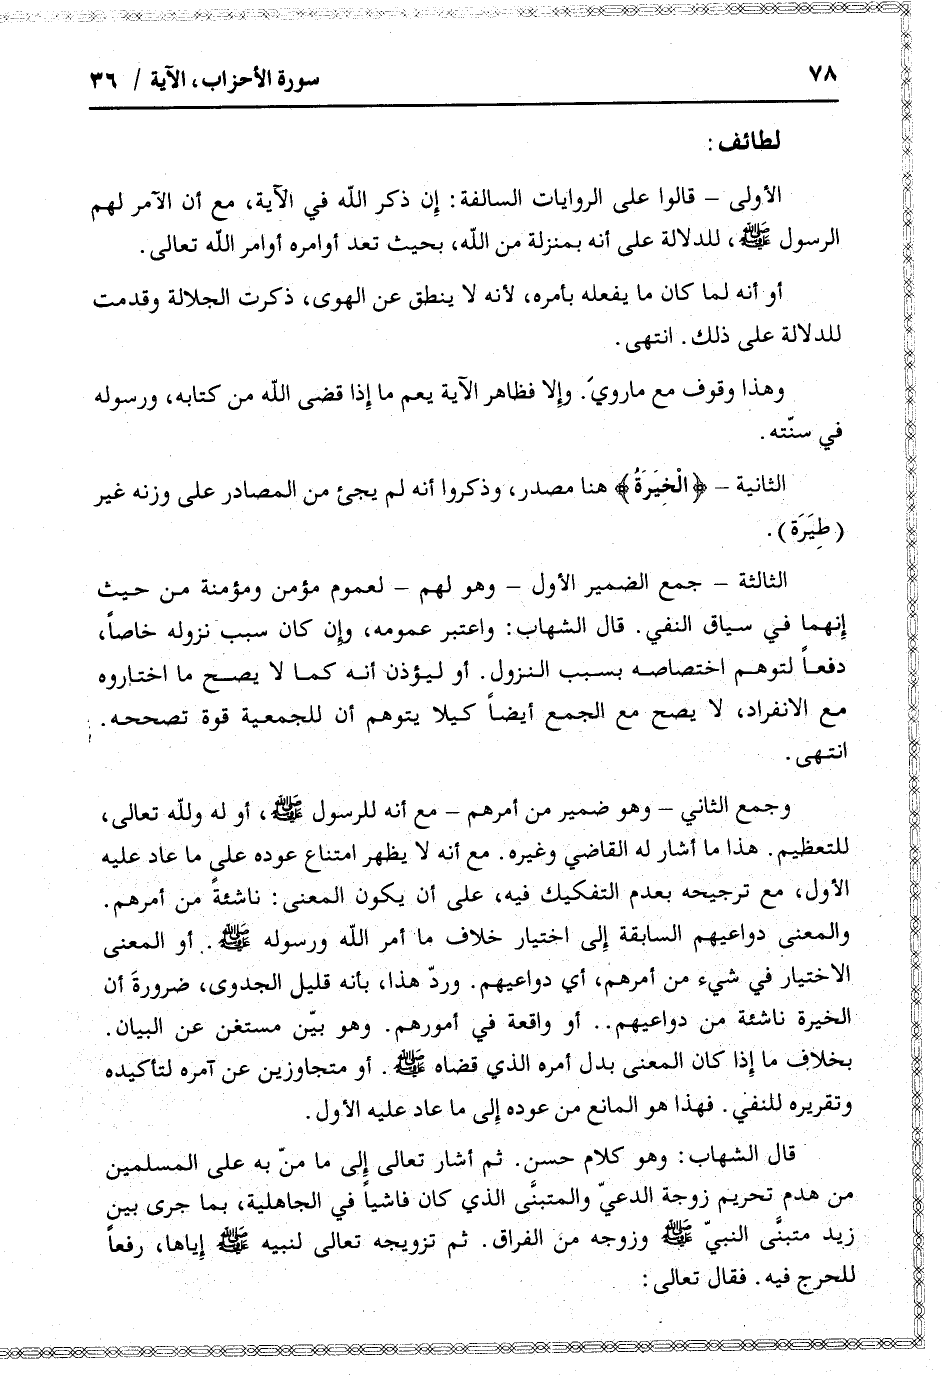 ٧٨
سورة الأحزاب، الآية / ٣٦
لطائف:
الأولى – قالوا على الروايات السالفة: إن ذكر الله في الآية، مع أن الآمر لهم
الرسول ﷺ، للدلالة على أنه بمنزلة من الله، بحيث تعد أوامره أوامر الله تعالى.
أو أنه لما كان ما يفعله بأمره، لأنه لا ينطق عن الهوى، ذكرت الجلالة وقدمت
للدلالة على ذلك. انتهى.
وهذا وقوف مع مارويَ. وإلا فظاهر الآية يعم ما إذا قضى الله من كتابه، ورسوله
في سنّته.
الثانية – ﴿الْخِيَرَةُ﴾ هنا مصدر، وذكروا أنه لم يجئ من المصادر على وزنه غير
(طِيَرَة).
الثالثة – جمع الضمير الأول – وهو لهم – لعموم مؤمن ومؤمنة من حيث
إنهما في سياق النفي. قال الشهاب: واعتبر عمومه، وإن كان سبب نزوله خاصاً،
دفعاً لتوهم اختصاصه بسبب النزول. أو ليؤذن أنه كما لا يصح ما اختاروه
مع الانفراد، لا يصح مع الجمع أيضاً كيلا يتوهم أن للجمعية قوة تصححه.
انتهى.
وجمع الثاني – وهو ضمير من أمرهم – مع أنه للرسول ﷺ، أو له ولله تعالى،
للتعظيم. هذا ما أشار له القاضي وغيره. مع أنه لا يظهر امتناع عوده على ما عاد عليه
الأول، مع ترجيحه بعدم التفكيك فيه، على أن يكون المعنى: ناشئةً من أمرهم.
والمعنى دواعيهم السابقة إلى اختيار خلاف ما أمر الله ورسوله ﷺ. أو المعنى
الاختيار في شيء من أمرهم، أي دواعيهم. وردّ هذا، بأنه قليل الجدوى، ضرورةَ أن
الخيرة ناشئة من دواعيهم.. أو واقعة في أمورهم. وهو بيّن مستغن عن البيان.
بخلاف ما إذا كان المعنى بدل أمره الذي قضاه ﷺ. أو متجاوزين عن آمره لتأكيده
وتقريره للنفي. فهذا هو المانع من عوده إلى ما عاد عليه الأول.
قال الشهاب: وهو كلام حسن. ثم أشار تعالى إلى ما منّ به على المسلمين
من هدم تحريم زوجة الدعيّ والمتبنَّى الذي كان فاشياً في الجاهلية، بما جرى بين
زيد متبنَّى النبيّ ﷺ وزوجه من الفراق. ثم تزويجه تعالى لنبيه ﷺ إياها، رفعاً
للحرج فيه. فقال تعالى: